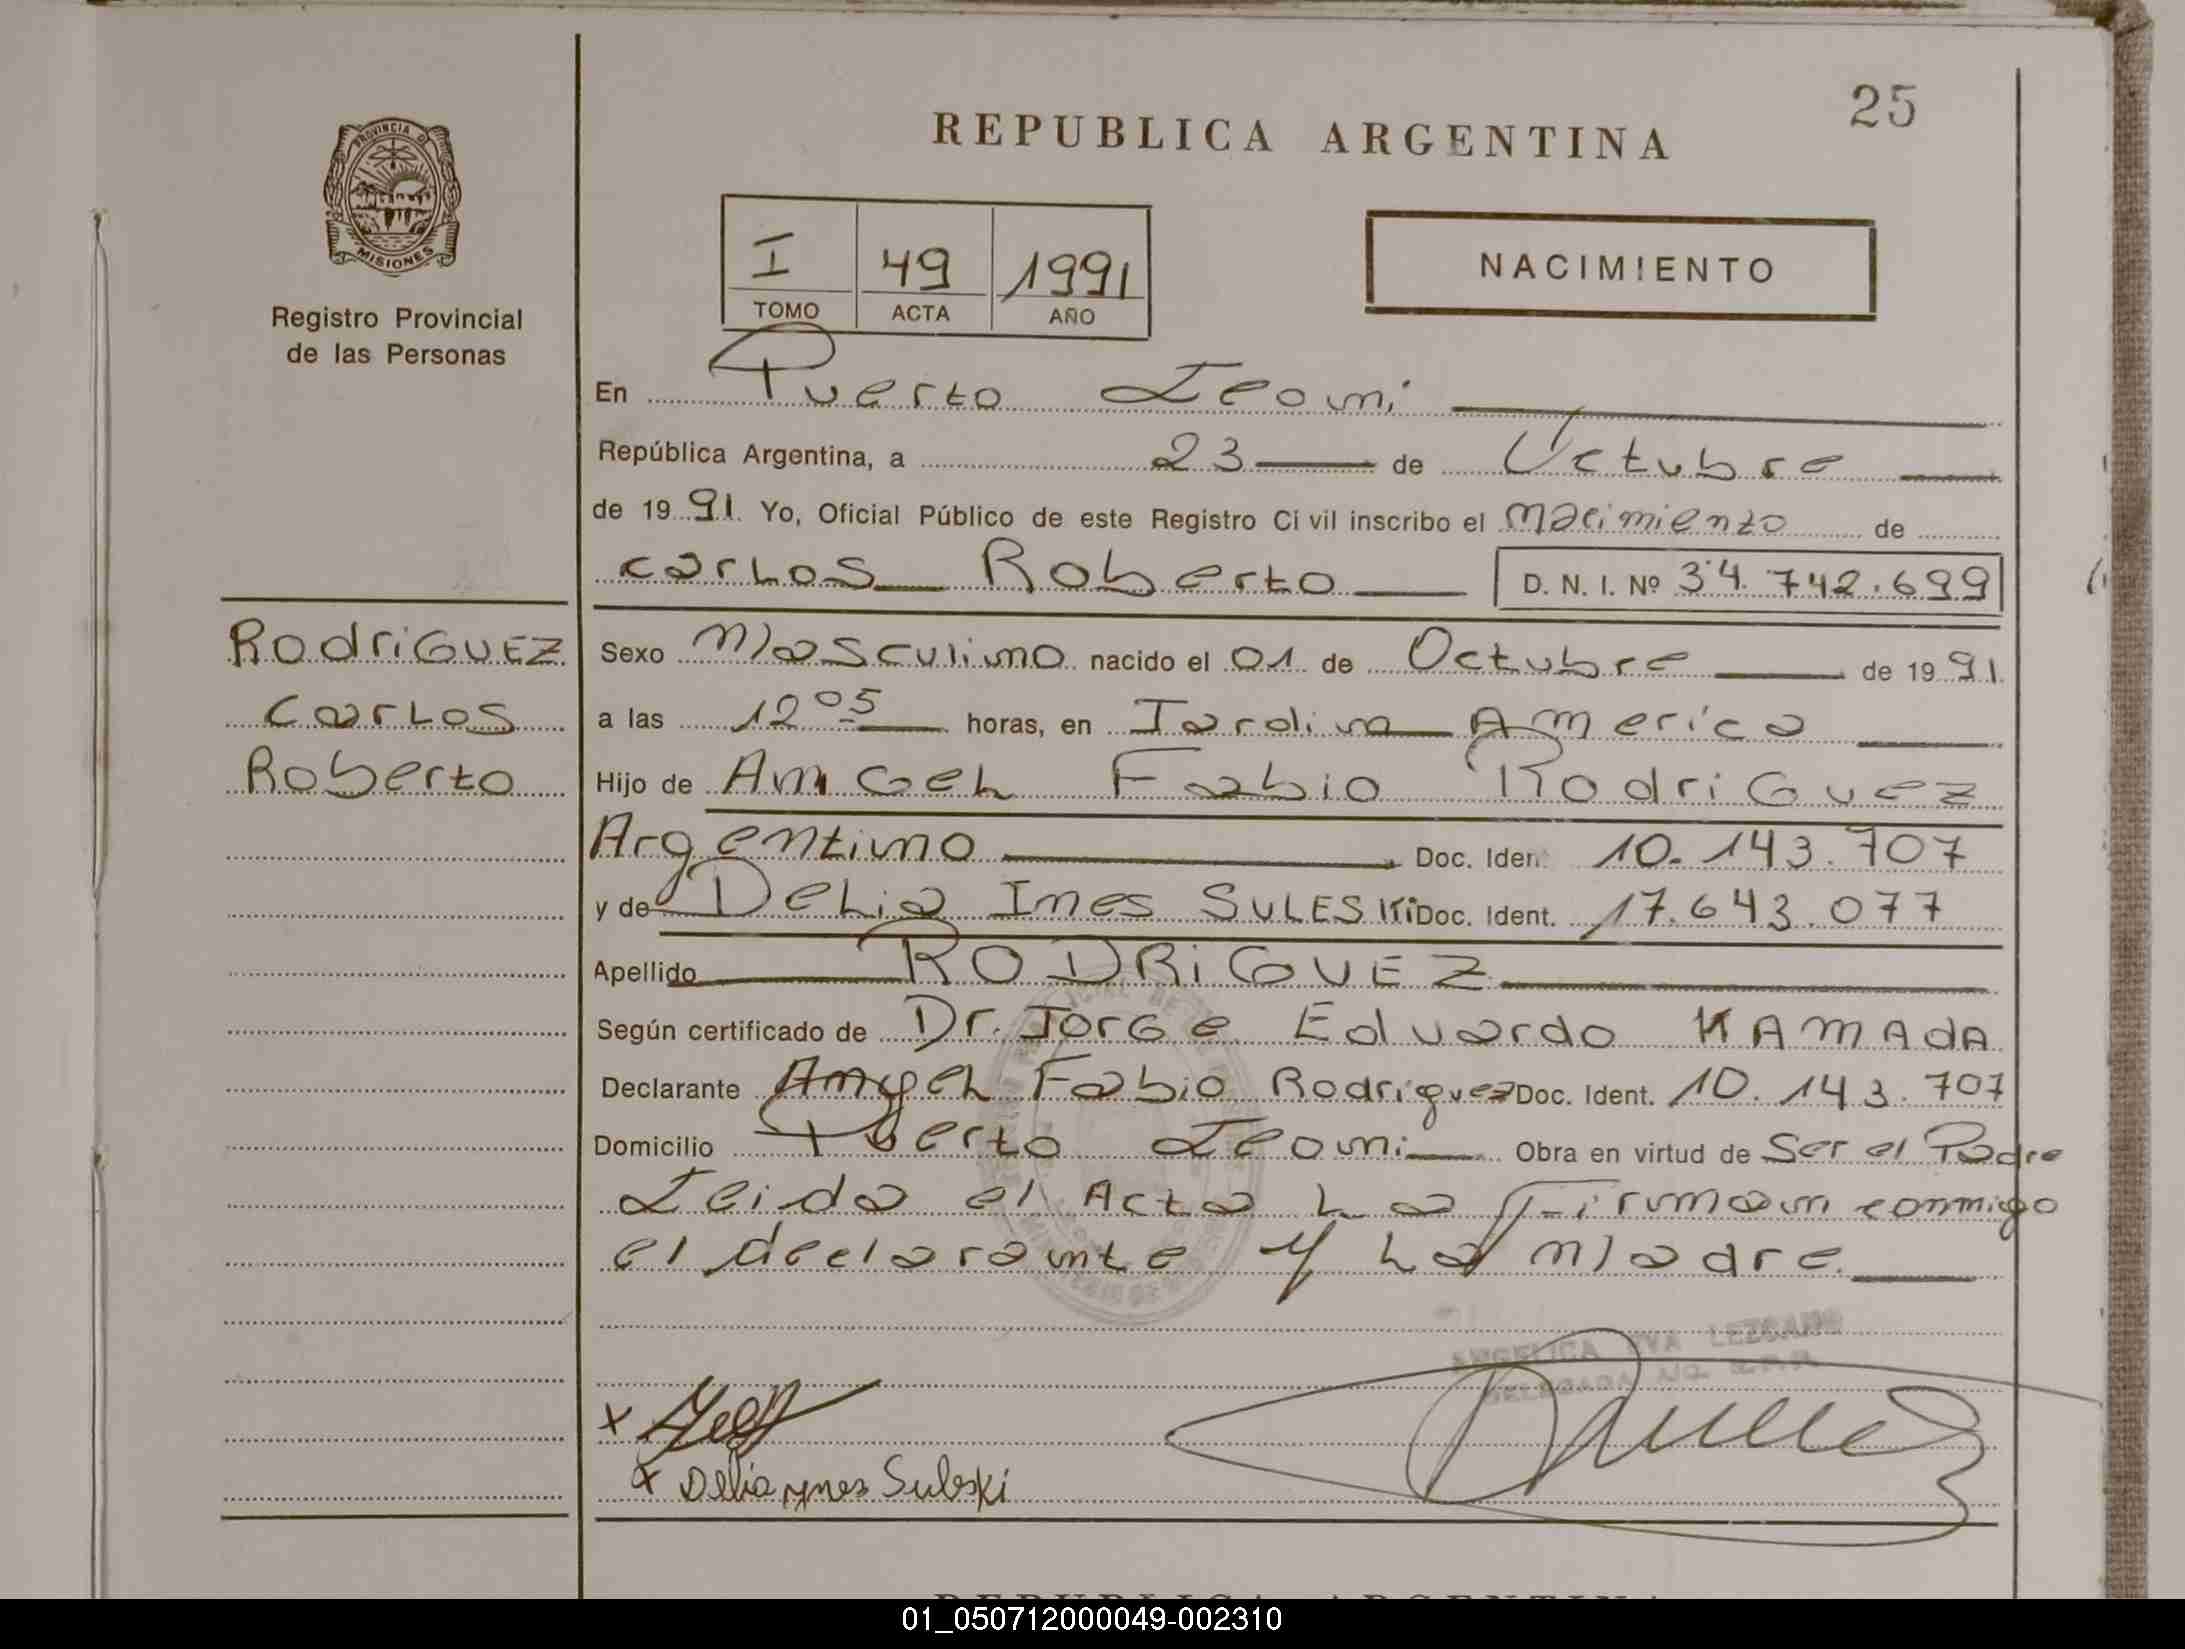 25
REPUBLICA ARGENTINA
PROVINCIA DE
MISIONES
Registro Provincial
de las Personas
I 49 1991
TOMO ACTA AÑO
NACIMIENTO
En Puerto Leoni
República Argentina, a 23 de Octubre
de 1991. Yo, Oficial Público de este Registro Civil inscribo el nacimiento de
Carlos Roberto D. N. I. Nº 34.742.699
RodriGUEZ
Carlos
Roberto
Sexo Masculino nacido el 01 de Octubre de 1991
a las 12 05 horas, en Jardin America
Hijo de Angel Fabio RodriGuez
Argentino Doc. Iden. 10.143.707
y de Delia Ines SULESKi Doc. Ident. 17.643.077
Apellido RODRiGUEZ
Según certificado de Dr. Jorge Eduardo KAMAdA
Declarante Angel Fabio Rodriguez Doc. Ident. 10.143.707
Domicilio Puerto Leoni Obra en virtud de Ser el Padre
Leida el Acta La Firman conmigo
el declarante y La Madre.
ANGELICA EVA LEZCANO
DELEGADA
x
x Delia ynes Suleski
REPUBLICA ARGENTINA
01_050712000049-002310